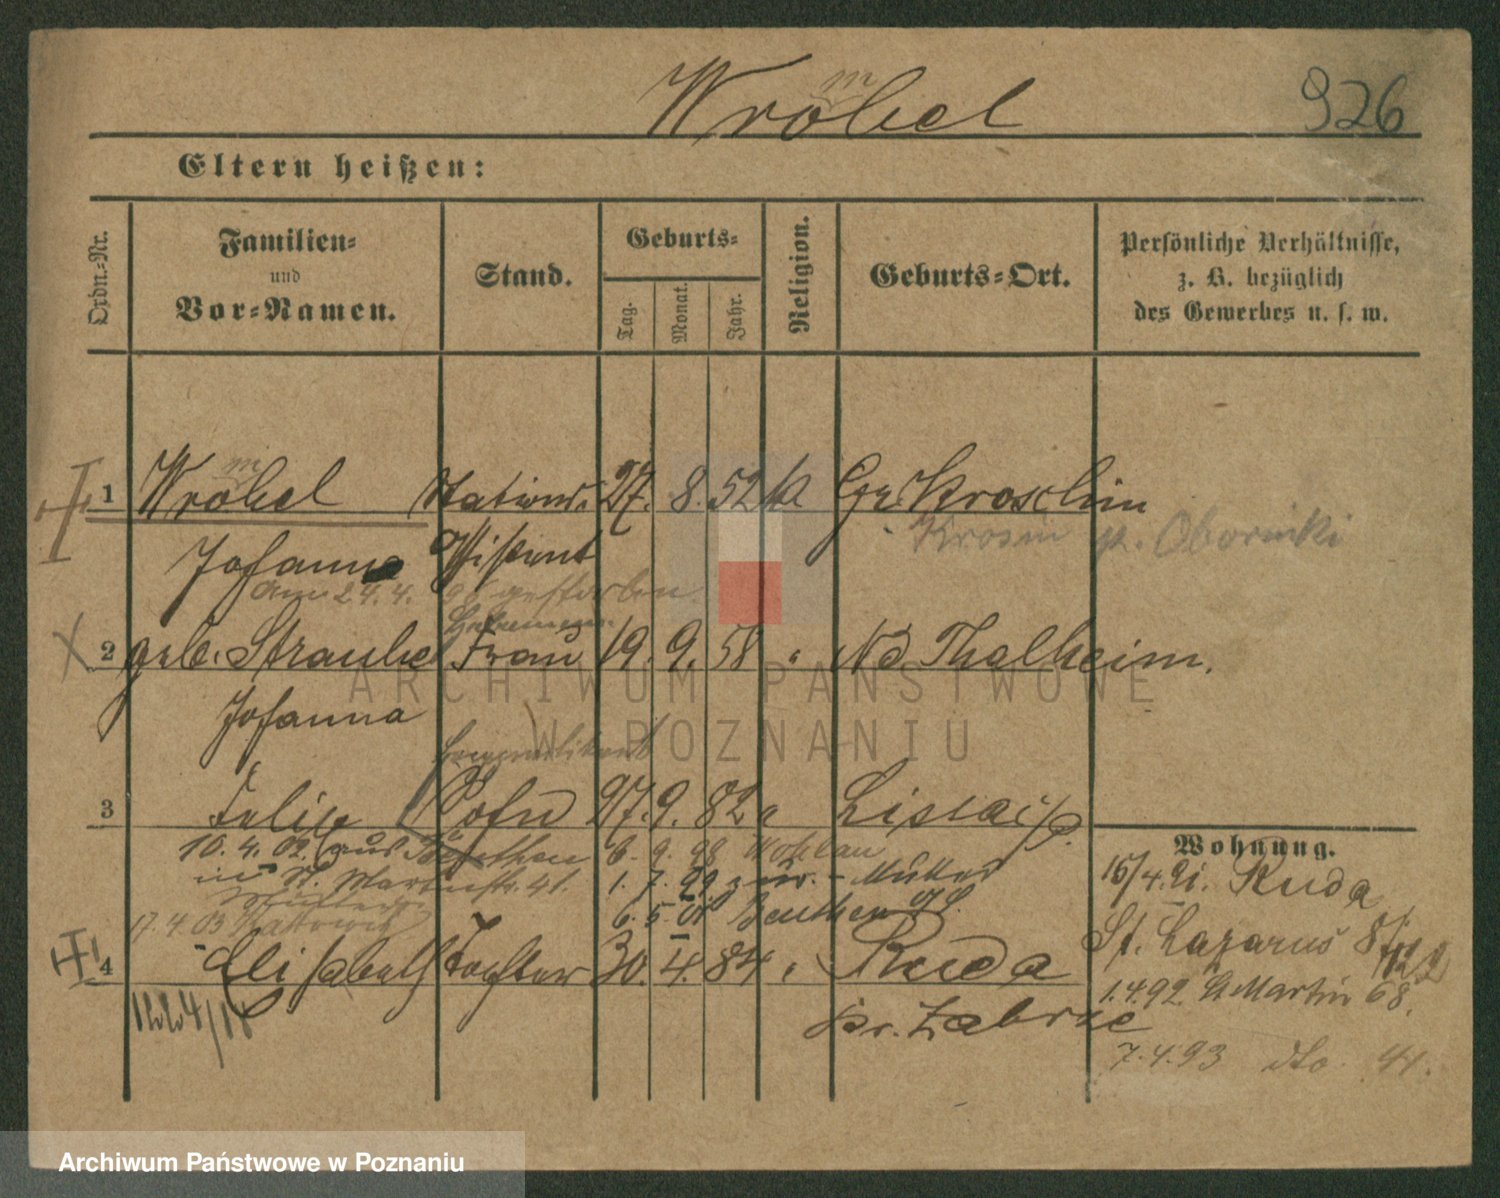 Wröbel
926
Eltern heißen:
Ordn.-Nr.
Familien-
und
Vor-Namen.
Stand.
Geburts-
Tag.
Monat.
Jahr.
Religion.
Geburts-Ort.
Persönliche Verhältnisse,
z. B. bezüglich
des Gewerbes u. s. w.
1 Wröbel Stations- 27. 8. 52 Gr Kroschin
Krosin p. Oborniki
Johann Assistent
am 24. 4. gestorben
Hebamme
2 geb. Straube Frau 19. 9. 58 " Nd. Thalheim.
Johanna
3 Felix Sohn 27. 9. 82 " Lissa i/P.
10. 4. 02. aus Beuthen 6. 9. 98 Wohlau
in St. Martinstr. 41. 1. 7. 99 zur Mutter
17. 4. 03 Kattowitz 6. 5. 01 Beuthen
4 Elisabeth Tochter 30. 4. 84 " Ruda
Kr. Zabrze
Wohnung.
15/4. 91. Ruda
St. Lazarus
1. 4. 92. St Martin 68.
7. 4. 93 dto. 41.
ARCHIWUM PAŃSTWOWE
W POZNANIU
Archiwum Państwowe w Poznaniu